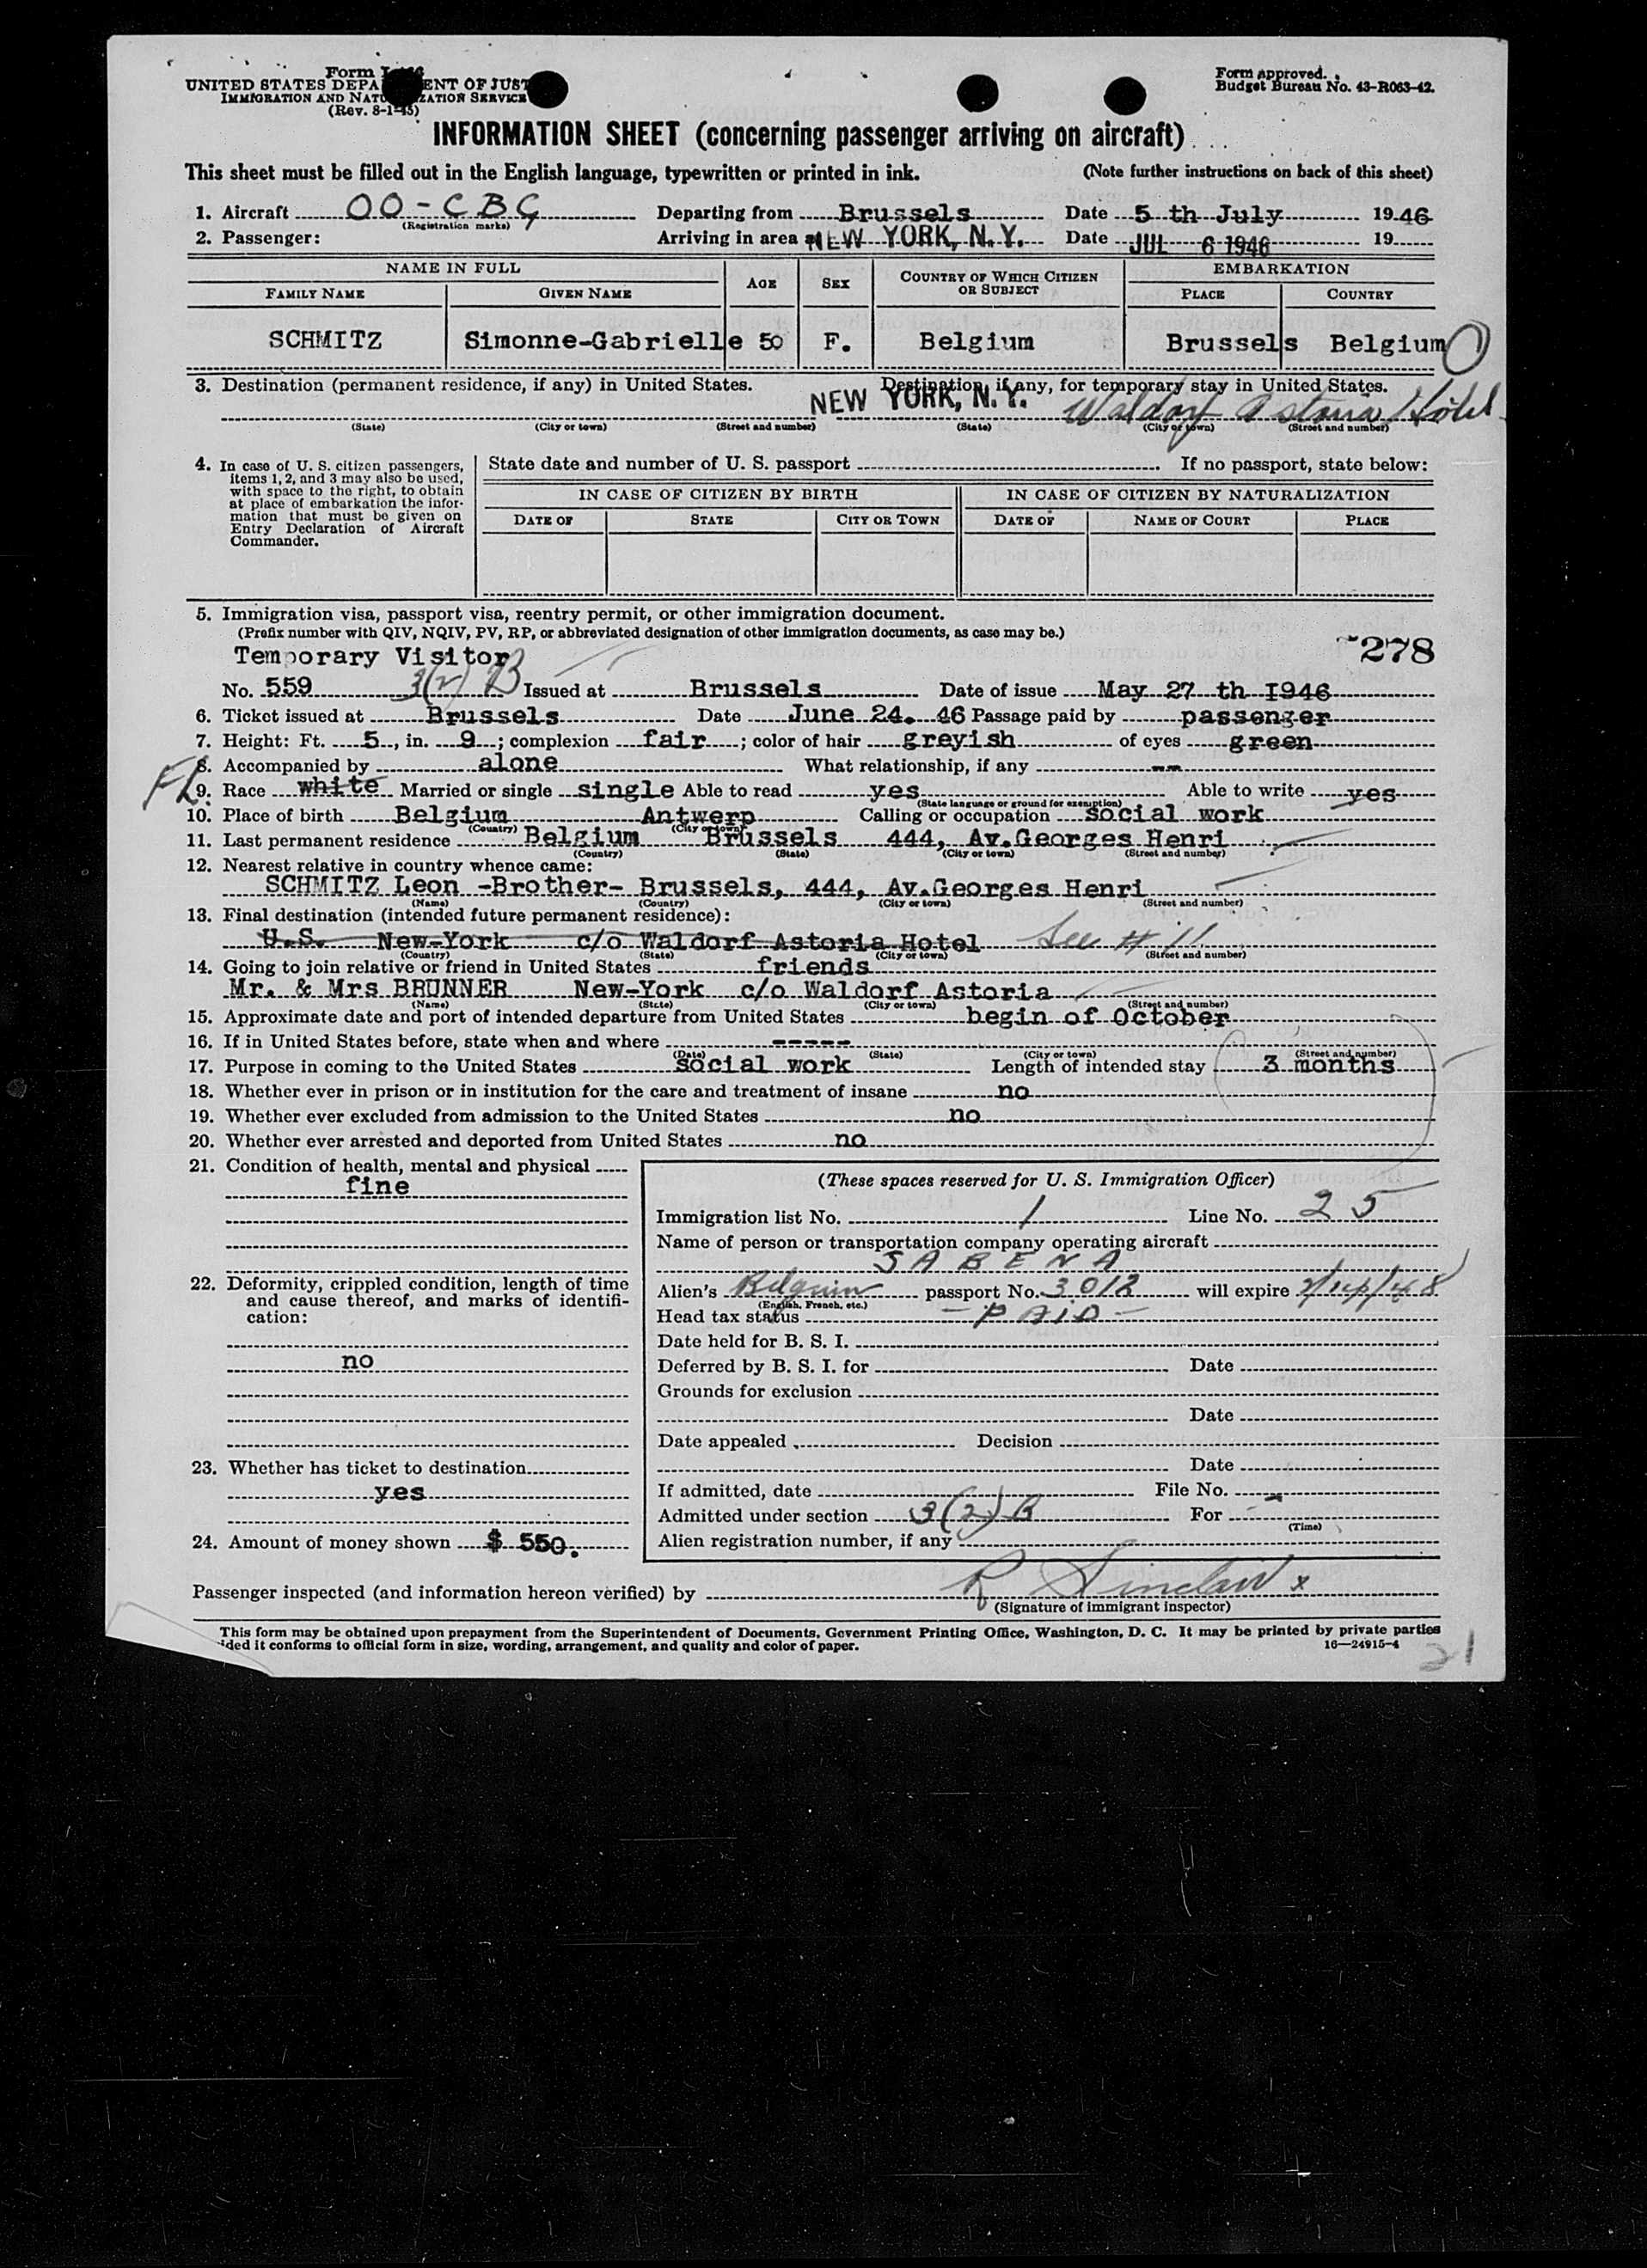 Form I-466
UNITED STATES DEPA ENT OF JUST
IMMIGRATION AND NATU ZATION SERVICE
(Rev. 8-1-45)
Form approved.
Budget Bureau No. 43-R063-42.
INFORMATION SHEET (concerning passenger arriving on aircraft)
This sheet must be filled out in the English language, typewritten or printed in ink. (Note further instructions on back of this sheet)
1. Aircraft OO-CBG Departing from Brussels Date 5 th July 1946
(Registration marks)
2. Passenger: Arriving in area NEW YORK, N.Y. Date JUL 6 1946 19
NAME IN FULL AGE SEX COUNTRY OF WHICH CITIZEN OR SUBJECT EMBARKATION
FAMILY NAME GIVEN NAME PLACE COUNTRY
SCHMITZ Simonne-Gabrielle 50 F. Belgium Brussels Belgium
3. Destination (permanent residence, if any) in United States. Destination, if any, for temporary stay in United States.
NEW YORK, N.Y. Waldorf Astoria Hotel
(State) (City or town) (Street and number) (State) (City or town) (Street and number)
4. In case of U. S. citizen passengers, items 1, 2, and 3 may also be used, with space to the right, to obtain at place of embarkation the information that must be given on Entry Declaration of Aircraft Commander.
State date and number of U. S. passport If no passport, state below:
IN CASE OF CITIZEN BY BIRTH IN CASE OF CITIZEN BY NATURALIZATION
DATE OF STATE CITY OR TOWN DATE OF NAME OF COURT PLACE
5. Immigration visa, passport visa, reentry permit, or other immigration document.
(Prefix number with QIV, NQIV, PV, RP, or abbreviated designation of other immigration documents, as case may be.)
Temporary Visitor 278
No. 559 3(2) B Issued at Brussels Date of issue May 27 th I946
6. Ticket issued at Brussels Date June 24. 46 Passage paid by passenger
7. Height: Ft. 5, in. 9; complexion fair; color of hair greyish of eyes green
8. Accompanied by alone What relationship, if any --
9. Race white Married or single single Able to read yes Able to write yes
(State language or ground for exemption)
10. Place of birth Belgium Antwerp Calling or occupation social work
(Country) (City or town)
11. Last permanent residence Belgium Brussels 444, Av.Georges Henri
(Country) (State) (City or town) (Street and number)
12. Nearest relative in country whence came:
SCHMITZ Leon -Brother- Brussels, 444, Av.Georges Henri
(Name) (Country) (City or town) (Street and number)
13. Final destination (intended future permanent residence):
U.S. New-York c/o Waldorf Astoria Hotel See # 11
(Country) (State) (City or town) (Street and number)
14. Going to join relative or friend in United States friends
Mr. & Mrs BRUNNER New-York c/o Waldorf Astoria
(Name) (State) (City or town) (Street and number)
15. Approximate date and port of intended departure from United States begin of October
16. If in United States before, state when and where -----
(Date) (State) (City or town) (Street and number)
17. Purpose in coming to the United States social work Length of intended stay 3 months
18. Whether ever in prison or in institution for the care and treatment of insane no
19. Whether ever excluded from admission to the United States no
20. Whether ever arrested and deported from United States no
21. Condition of health, mental and physical
fine
22. Deformity, crippled condition, length of time and cause thereof, and marks of identification:
no
23. Whether has ticket to destination
yes
24. Amount of money shown $ 550.
(These spaces reserved for U. S. Immigration Officer)
Immigration list No. 1 Line No. 25
Name of person or transportation company operating aircraft
SABENA
Alien's Belgium passport No. 3012 will expire 2/14/48
(English, French, etc.)
Head tax status - PAID -
Date held for B. S. I.
Deferred by B. S. I. for Date
Grounds for exclusion
Date
Date appealed Decision
Date
If admitted, date File No.
Admitted under section 3(2) B For
(Time)
Alien registration number, if any
Passenger inspected (and information hereon verified) by R Sinclair x
(Signature of immigrant inspector)
This form may be obtained upon prepayment from the Superintendent of Documents, Government Printing Office, Washington, D. C. It may be printed by private parties
ided it conforms to official form in size, wording, arrangement, and quality and color of paper. 16—24915-4
21